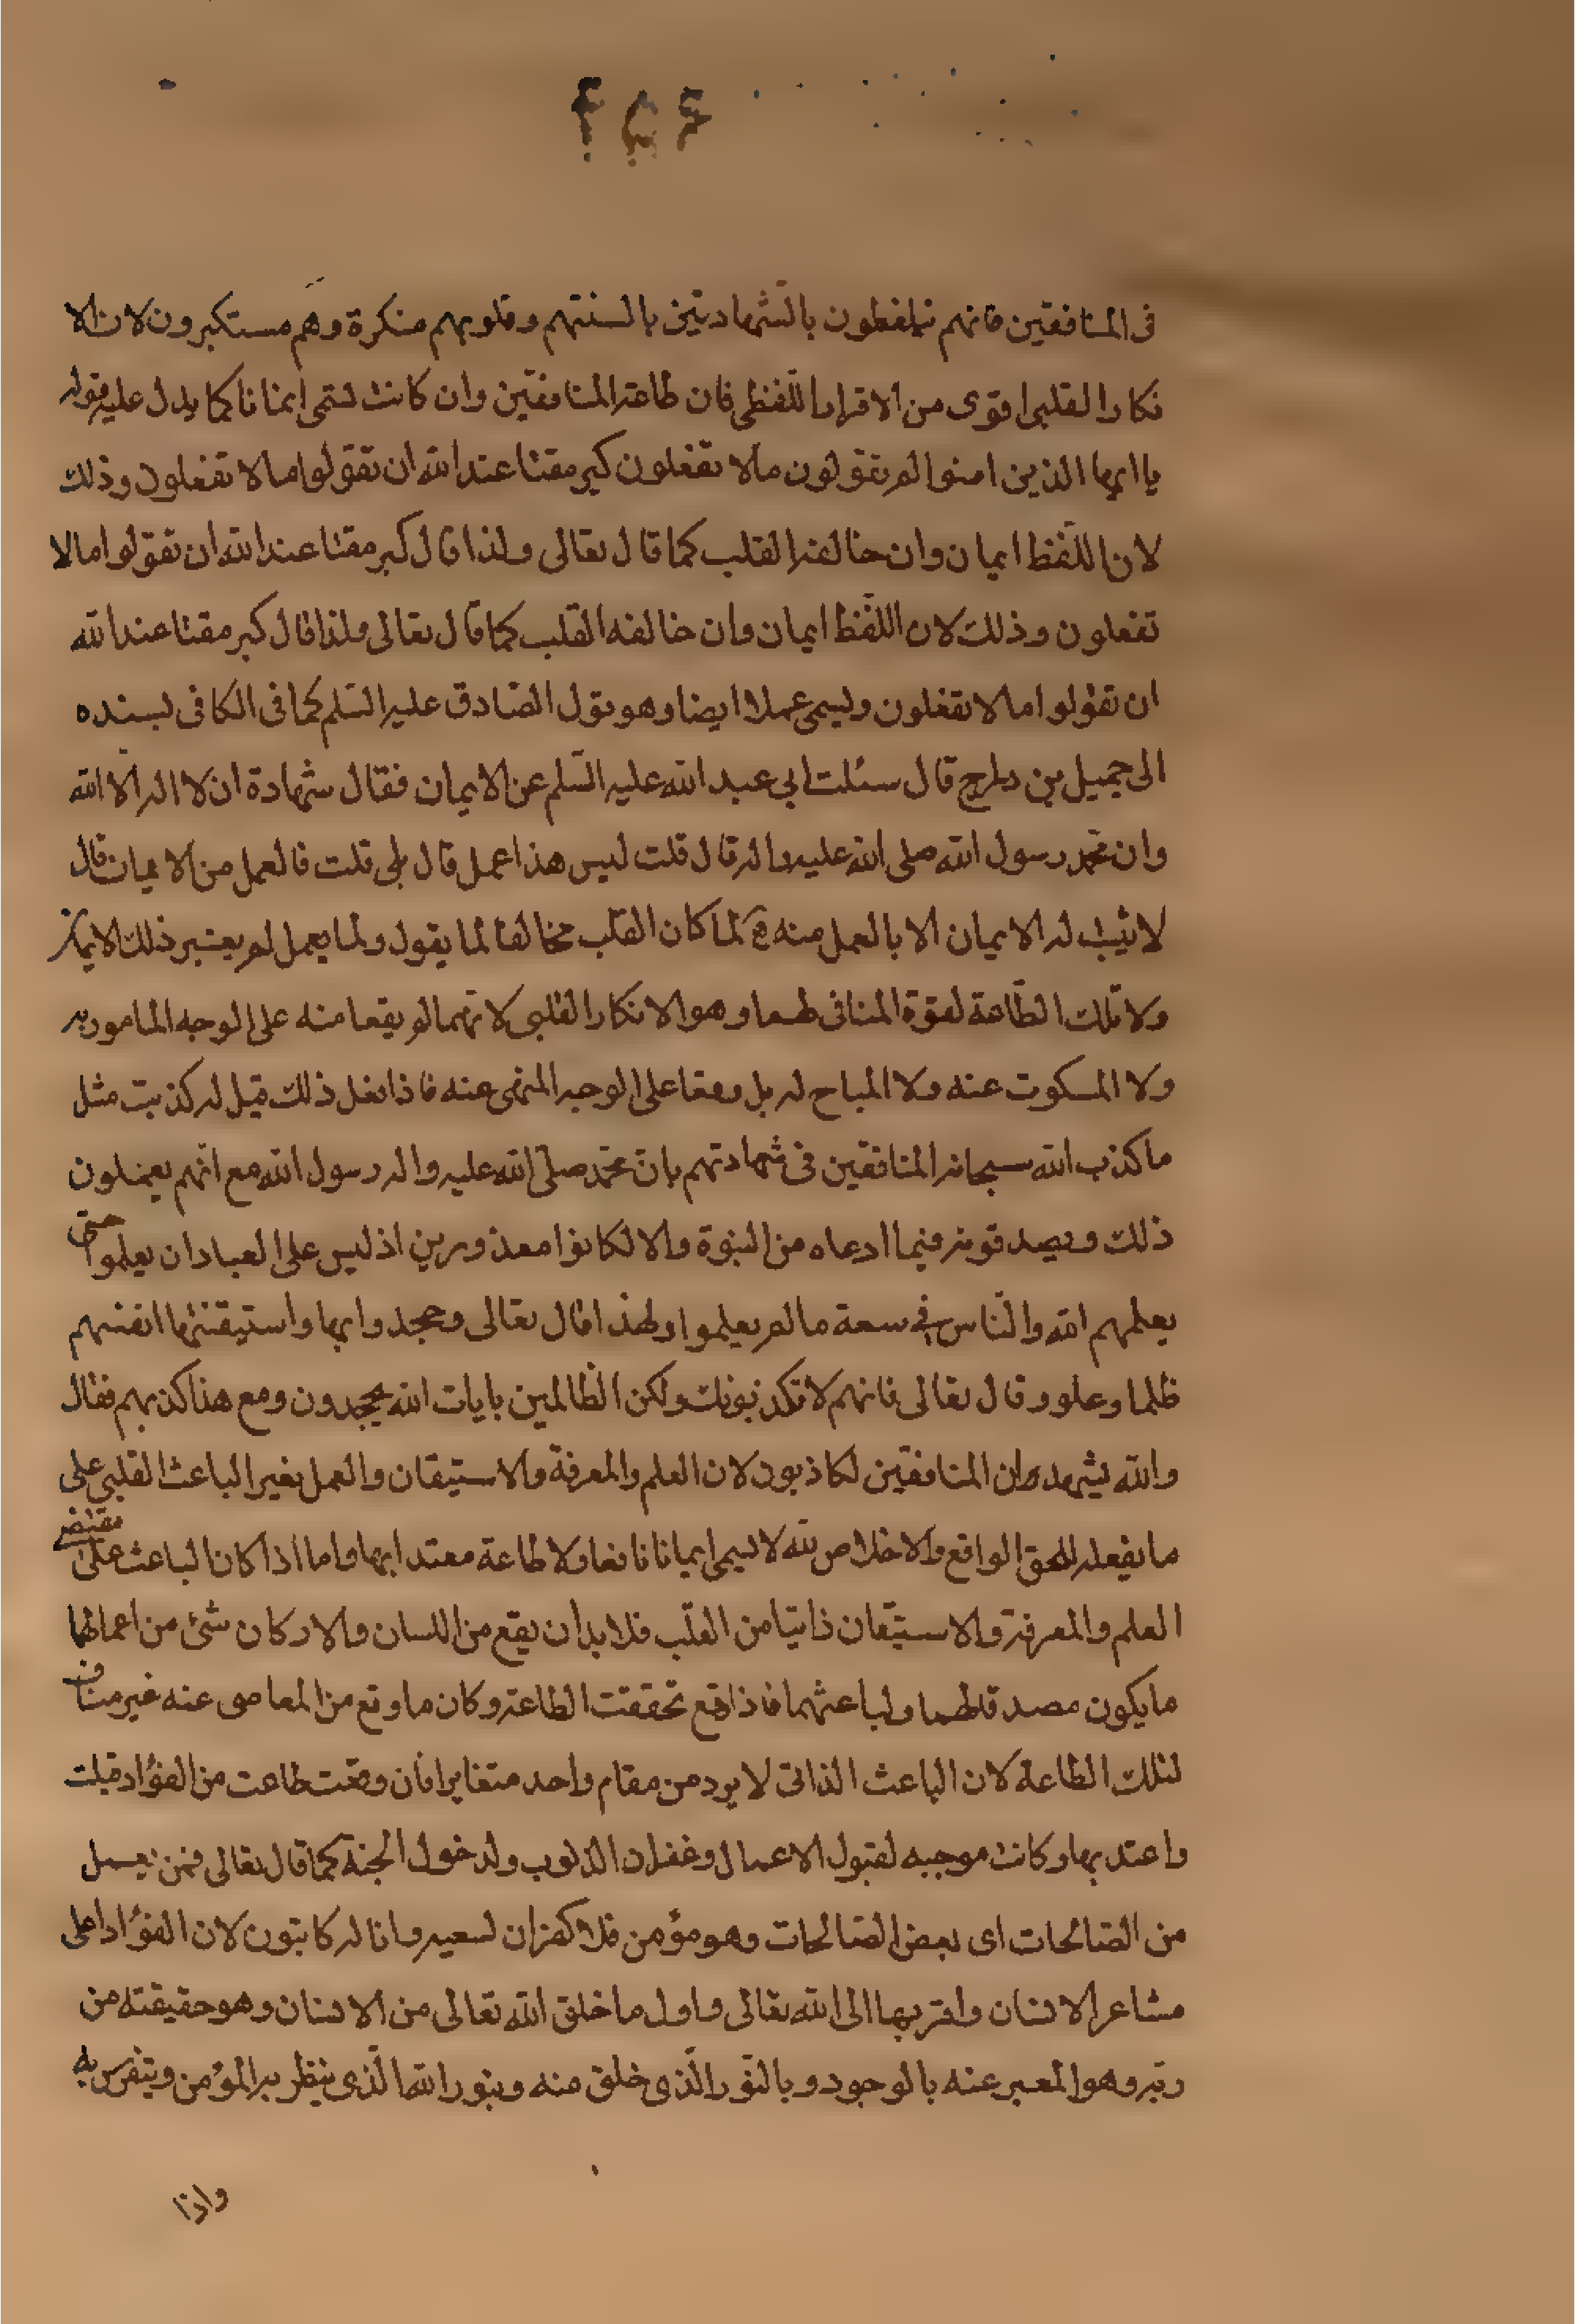 في المنافقين فانهم يتلفظون بالشهادتين بالسنتهم وقلوبهم منكرة وهم مستكبرون لان الا
نكار القلبى اقوى من الاقرار اللفظى فان طاعة المنافقين وان كانت تسمى ايمانا كما يدل عليه قوله
يا ايها الذين امنوا لم تقولون ما لا تفعلون كبر مقتا عند الله ان تقولوا ما لا تفعلون وذلك
لان اللفظ ايمان وان خالفه القلب كما قال تعالى ولذا قال كبر مقتا عند الله ان تقولوا ما لا
تفعلون وذلك لان اللفظ ايمان وان خالفه القلب كما قال تعالى ولذا قال كبر مقتا عند الله
ان تقولوا ما لا تفعلون وليسمى عملا ايضا وهو قول الصادق عليه السلم كما فى الكافى بسنده
الى جميل بن دراج قال سئلت ابي عبد الله عليه السلم عن الايمان فقال شهادة ان لا اله الا الله
وان محمد رسول الله صلى الله عليه واله قال قلت ليس هذا عمل قال بلى قلت فالعمل من الايمان قال
لا يثبت له الايمان الا بالعمل منه كان القلب مخالفا لما يقول ولما يعمل لم يعتبر ذلك الايمان
ولا تلك الطاعة لقوة المنافى لهما وهو الانكار القلبى لانهما لم يقعا منه على الوجه المامور به
ولا المسكوت عنه ولا المباح له بل وقعا على الوجه المنهى عنه فاذا فعل ذلك قيل له كذبت مثل
ما كذب الله سبحانه المنافقين فى شهادتهم بان محمد صلى الله عليه واله رسول الله مع انهم يعلمون
ذلك ويصدقونه فيما ادعاه من النبوة والا لكانوا معذورين اذ ليس على العباد ان يعلموا حتى
يعلمهم الله والناس في سعة ما لم يعلموا ولهذا قال تعالى وجحدوا بها واستيقنتها انفسهم
ظلما وعلو وقال تعالى فانهم لا تكذبونك ولكن الظالمين بايات الله يجحدون ومع هذا كذبهم فقال
والله يشهد ان المنافقين لكاذبون لان العلم والمعرفة والاستيقان والعمل بغير الباعث القلبى على
ما يفعله للحق الواقع والاخلاص لله لا يسمى ايمانا نافعا ولا طاعة معتد ابها واما اذا كان الباعث على مقتضى
العلم والمعرفة والاستيقان ذاتيا من القلب فلا بد ان يقع من اللسان والاركان شئ من اعمالهما
ما يكون مصدقا لهما ولباعثهما فاذا وقع تحققت الطاعة وكان ما وقع من المعاصى عنه غير مناف
لتلك الطاعة لان الباعث الذاتى لا يرد من مقام واحد متغايرا فان وقعت طاعت من الفؤاد قبلت
واعتد بها وكانت موجبه لقبول الاعمال وغفران الذنوب ولدخول الجنة كما قال تعالى فمن يعمل
من الصالحات اى بعض الصالحات وهو مؤمن فلا كفران لسعيه وانا له كاتبون لان الفؤاد اعلى
مشاعر الانسان واقربها الى الله تعالى واول ما خلق الله تعالى من الانسان وهو حقيقته من
ربه وهو المعبر عنه بالوجود وبالنور الذى خلق منه وبنور الله الذى ينظر به المؤمن ويتفرس به
واذا